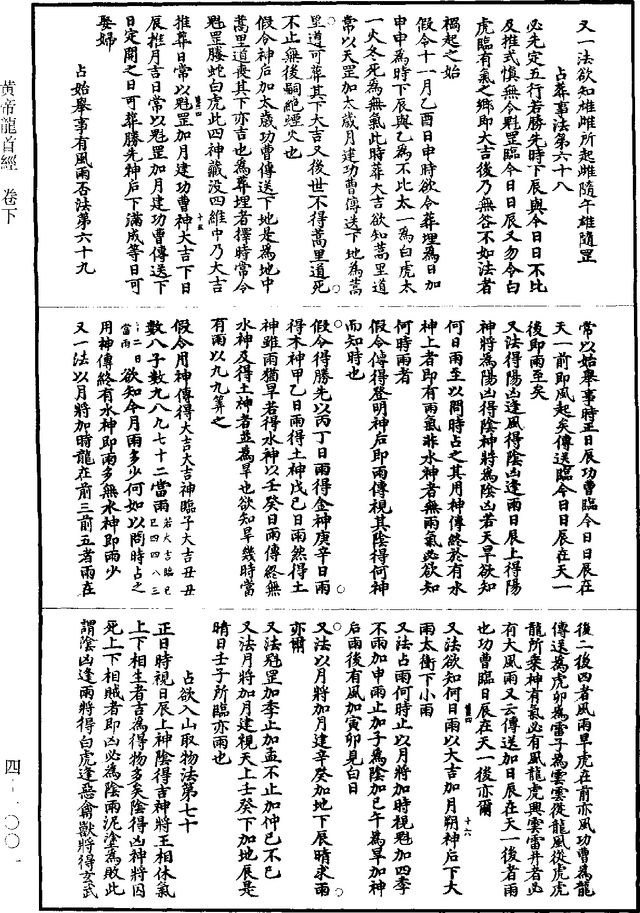 又一法欲知雄雌所起雌隨午雄隨罡
占葬事法第六十八
必先定五行若勝先時下辰與今日日不比
及推式慎無令魁罡臨今日日辰又勿令白
虎臨有氣之鄉即大吉後乃無咎不如法者
禍起之始
假令十一月乙酉日申時欲令葬埋為日加
申申為時下辰與乙為不比太一為白虎太
一火冬死為無氣此時葬大吉欲知蒿里道
常以天罡加太歲月建功曹傳送下地為蒿
里道可葬其下大吉又後世不得蒿里道死
不止無後嗣絕煙火也
假令神后加太歲功曹傳送下地是為地中
蒿里道喪其下亦吉也為葬埋者擇時常令
魁罡螣蛇白虎此四神藏沒四維中乃大吉
推葬日常以魁罡加月建功曹神大吉下日
十五
辰推月吉日常以魁罡加月建功曹傳送下
日定開之日可葬勝先神后下滿成等日可
娶婦
占始舉事有風雨否法第六十九
常以始舉事時正日辰功曹臨今日日辰在
天一前即風起矣傳送臨今日日辰在天一
後即雨至矣
又法得陽凶逢風得陰凶逢雨日辰上得陽
神將為陽凶得陰神將為陰凶若天旱欲知
何日雨至以問時占之其用神傳終於有水
神上者即有雨氣非水神者無雨氣必欲知
何時雨者
假令傳得登明神后即雨傳視其陰得何神
而知時也
假令得勝先以丙丁日雨得金神庚辛日雨
得木神甲乙日雨得土神戊己日雨然得土
神雖雨猶旱若得水神以壬癸日雨傳終無
水神及得土神者並為旱也欲知旱幾時當
有雨以九九算之
假令用神傳得大吉大吉神臨子大吉丑丑
數八子數九八九七十二當雨若大吉臨巳巳四四八三
十二日當雨欲知今月雨多少何如以問時占之
用神傳終有水神即雨多無水神即雨少
又一法以月將加時龍在前三前五者雨在
後二後四者風雨旱虎在前亦風功曹為龍
傳送為虎卯為雷子為雲雲從龍風從虎虎
龍所乘神有氣必有風龍虎與雲雷并者必
有大風雨又云傳送加日辰在天一後者雨
也功曹臨日辰在天一後亦爾
十六
又法欲知何日雨以大吉加月朔神后下大
雨太衝下小雨
又法占雨何時止以月將加時視魁加四季
不雨加申雨止加子為陰加巳午為旱加神
后雨後有風加寅卯見白日
又法以月將加月建辛癸加地下辰晴求雨
亦爾
又法魁罡加季止加孟不止加仲已不已
又法月將加月建視天上壬癸下加地辰是
晴日壬子所臨亦雨也
占欲入山取物法第七十
正日時視日辰上神陰得吉神將王相休氣
上下相生者吉為得物多矣陰得凶神將囚
死上下相賊者即凶必為陰雨泥塗為敗此
謂陰凶逢雨將得白虎逢惡禽獸將得玄武
黃帝龍首經 卷下
四-一〇〇一